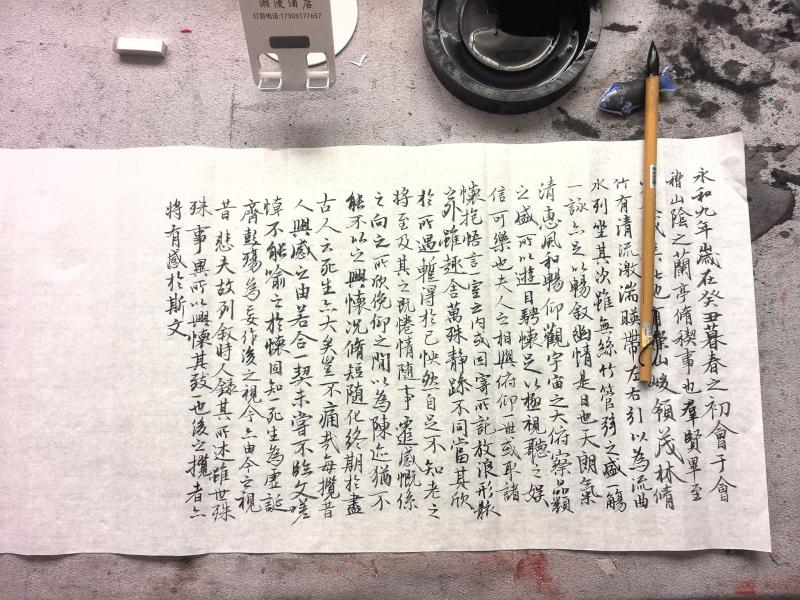 瀾漫酒店
订房电话:17305177657
永和九年歲在癸丑暮春之初會于會
稽山陰之蘭亭脩禊事也群賢畢至
咸集此地有崇山峻領茂林脩
竹有清流激湍暎帶左右引以為流曲
水列坐其次雖無絲竹管弦之盛一觴
一詠亦足以暢敘幽情是日也天朗氣
清惠風和暢仰觀宇宙之大俯察品類
之盛所以遊目騁懷足以極視聽之娛
信可樂也夫人之相與俯仰一世或取諸
懷抱悟言室之內或因寄所託放浪形骸
之外雖趣舍萬殊靜躁不同當其欣
於所遇蹔得於己怏然自足不知老之
將至及其之既惓情隨事遷感慨係
之向之所欣俛仰之間以為陳迹猶不
能不以之興懷況脩短隨化終期於盡
古人云死生亦大矣豈不痛哉每攬昔
人興感之由若合一契未嘗不臨文嗟
悼不能喻之於懷固知死生為虛誕
齊彭殤為妄作後之視今亦由今之視
昔悲夫故列敘時人錄其所述雖世殊
殊事異所以興懷其致一也後之攬者亦
將有感於斯文